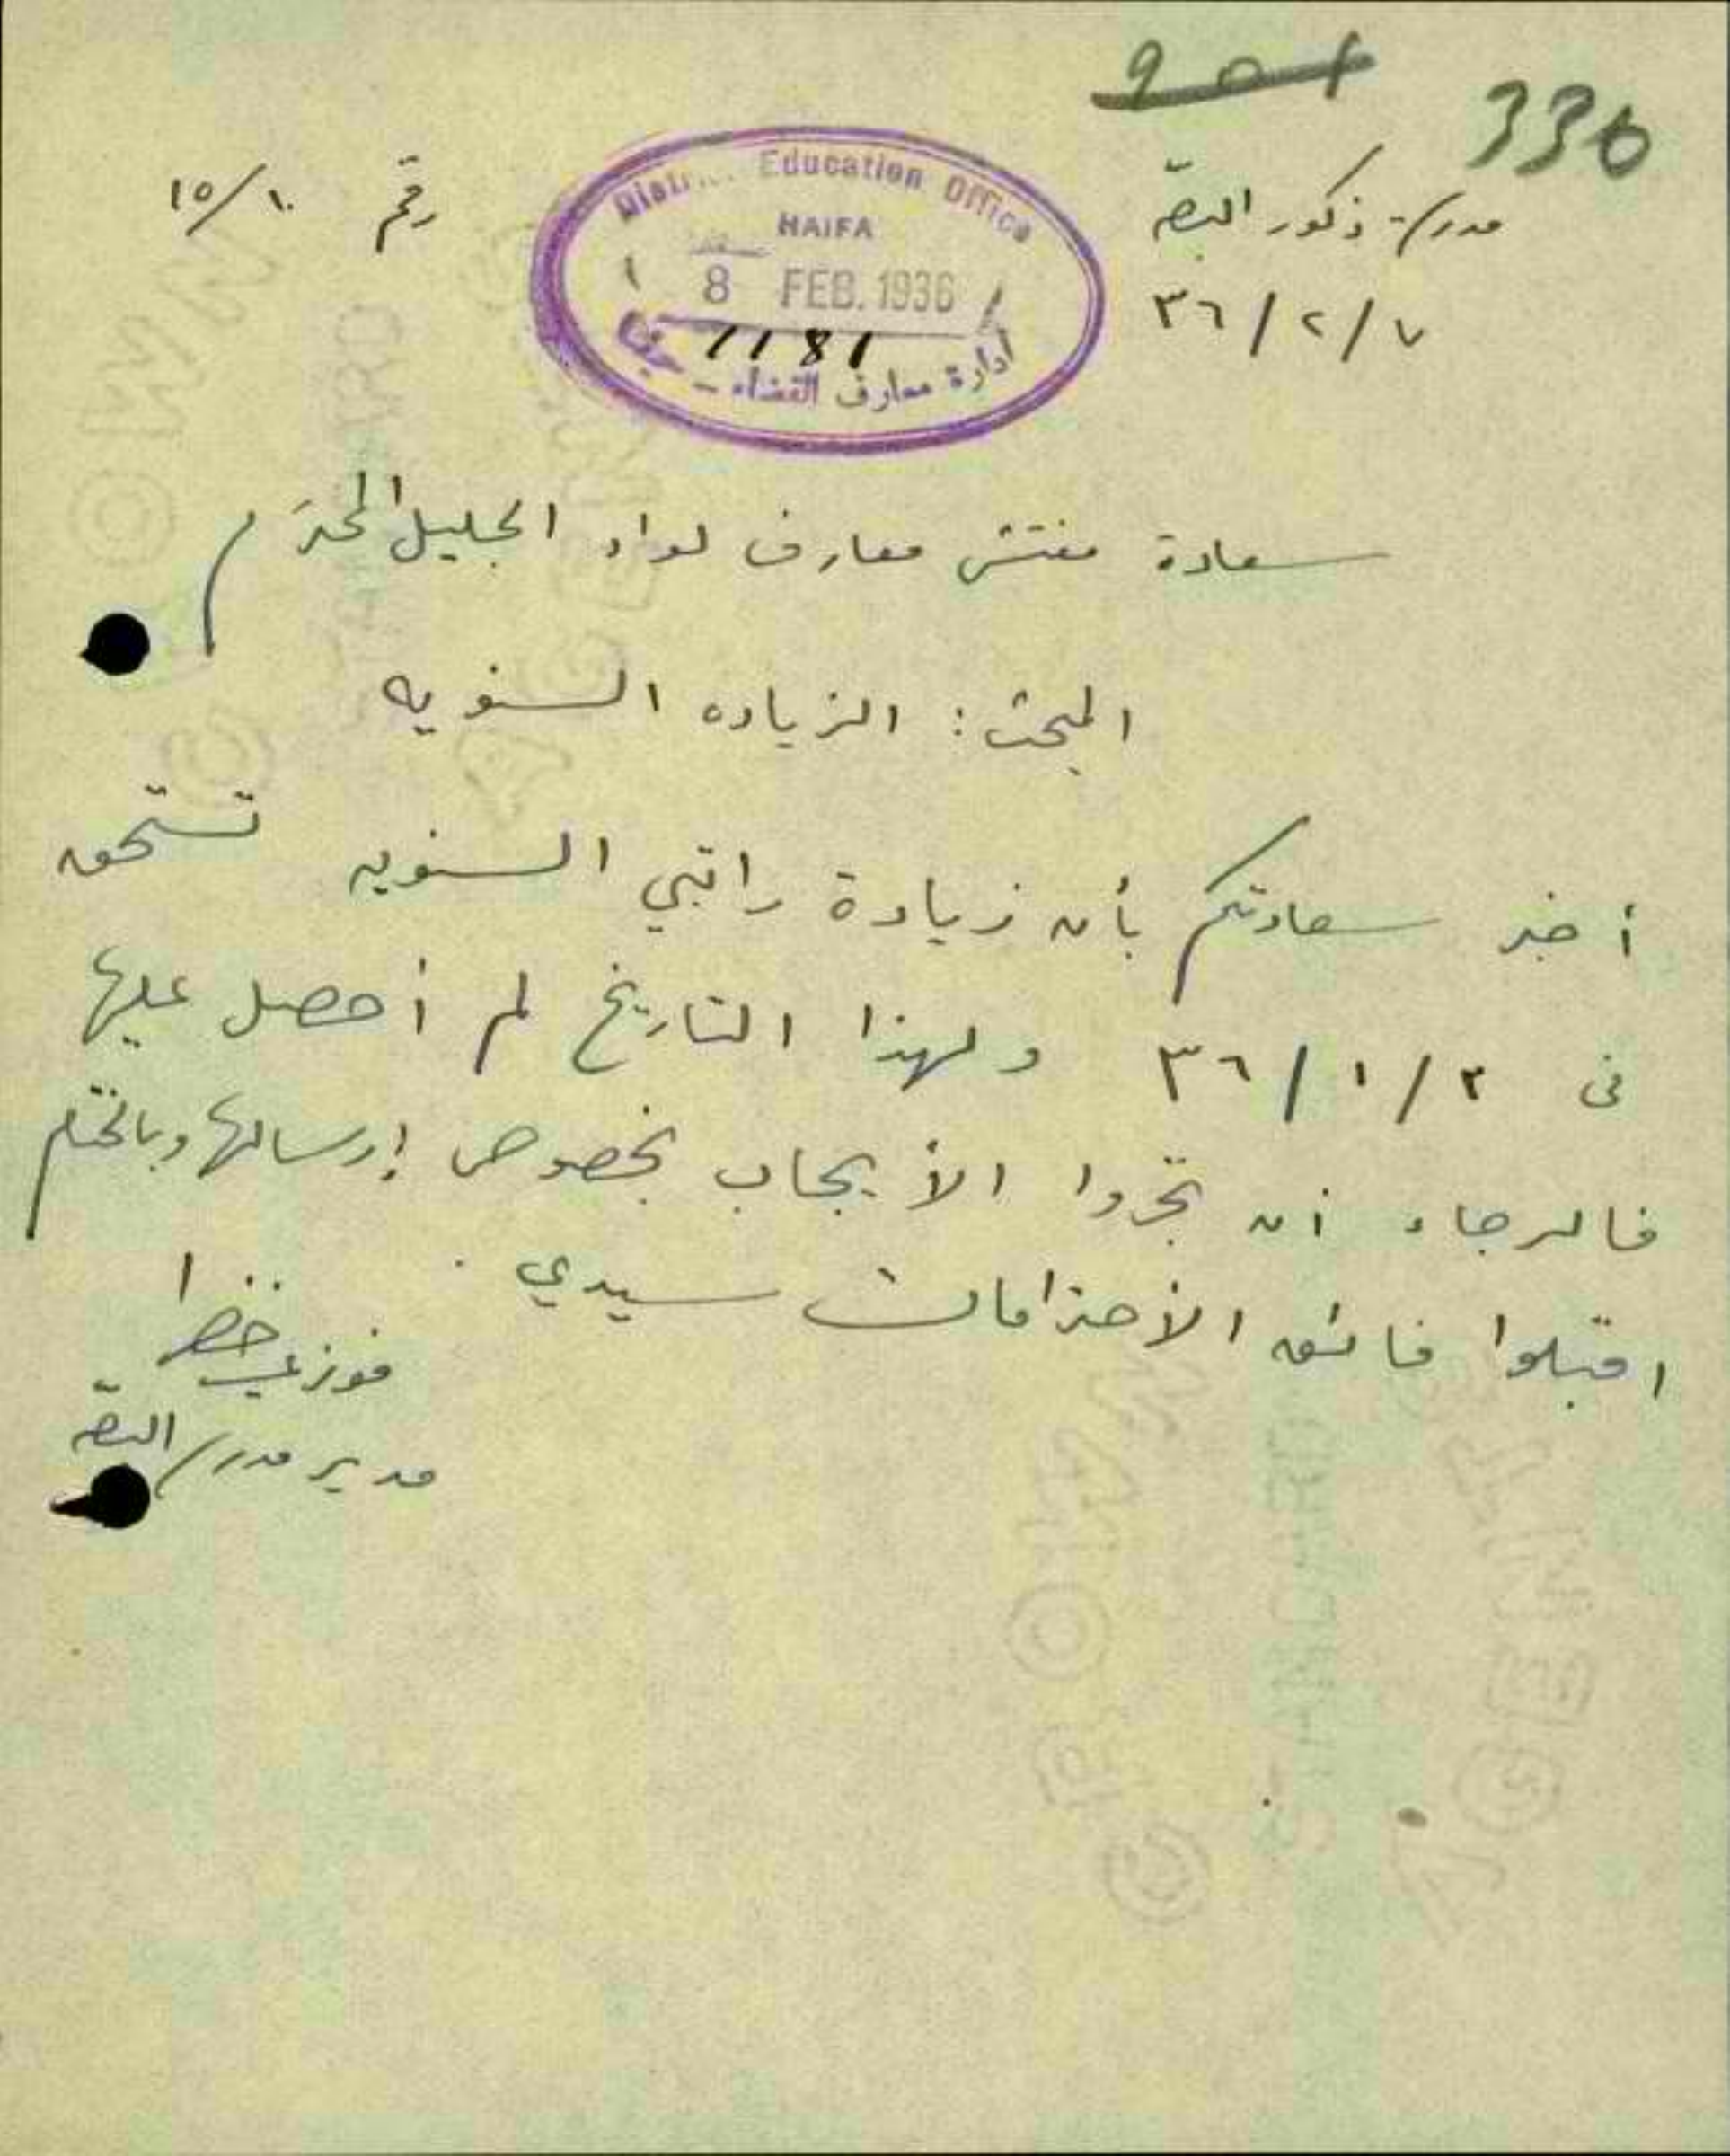 330
مدرسة ذكور البصة
رقم ١٥/١٠
٣٦/٢/٧
District Education Office
HAIFA
8 FEB. 1936
1181
ادارة معارف القضاء - حيفا
سعادة مفتش معارف لواء الجليل المحترم
المبحث: الزياده السنويه
أخبر سعادتكم بأن زيادة راتبي السنويه تستحق
في ٣٦/١/٢ ولهذا التاريخ لم أحصل عليها
فالرجاء أن تجروا الأيجاب بخصوص إرسالها وبالختام
اقبلوا فائق الأحترامات سيدي .
فوزي خضرا
مدير مدرسة البصة